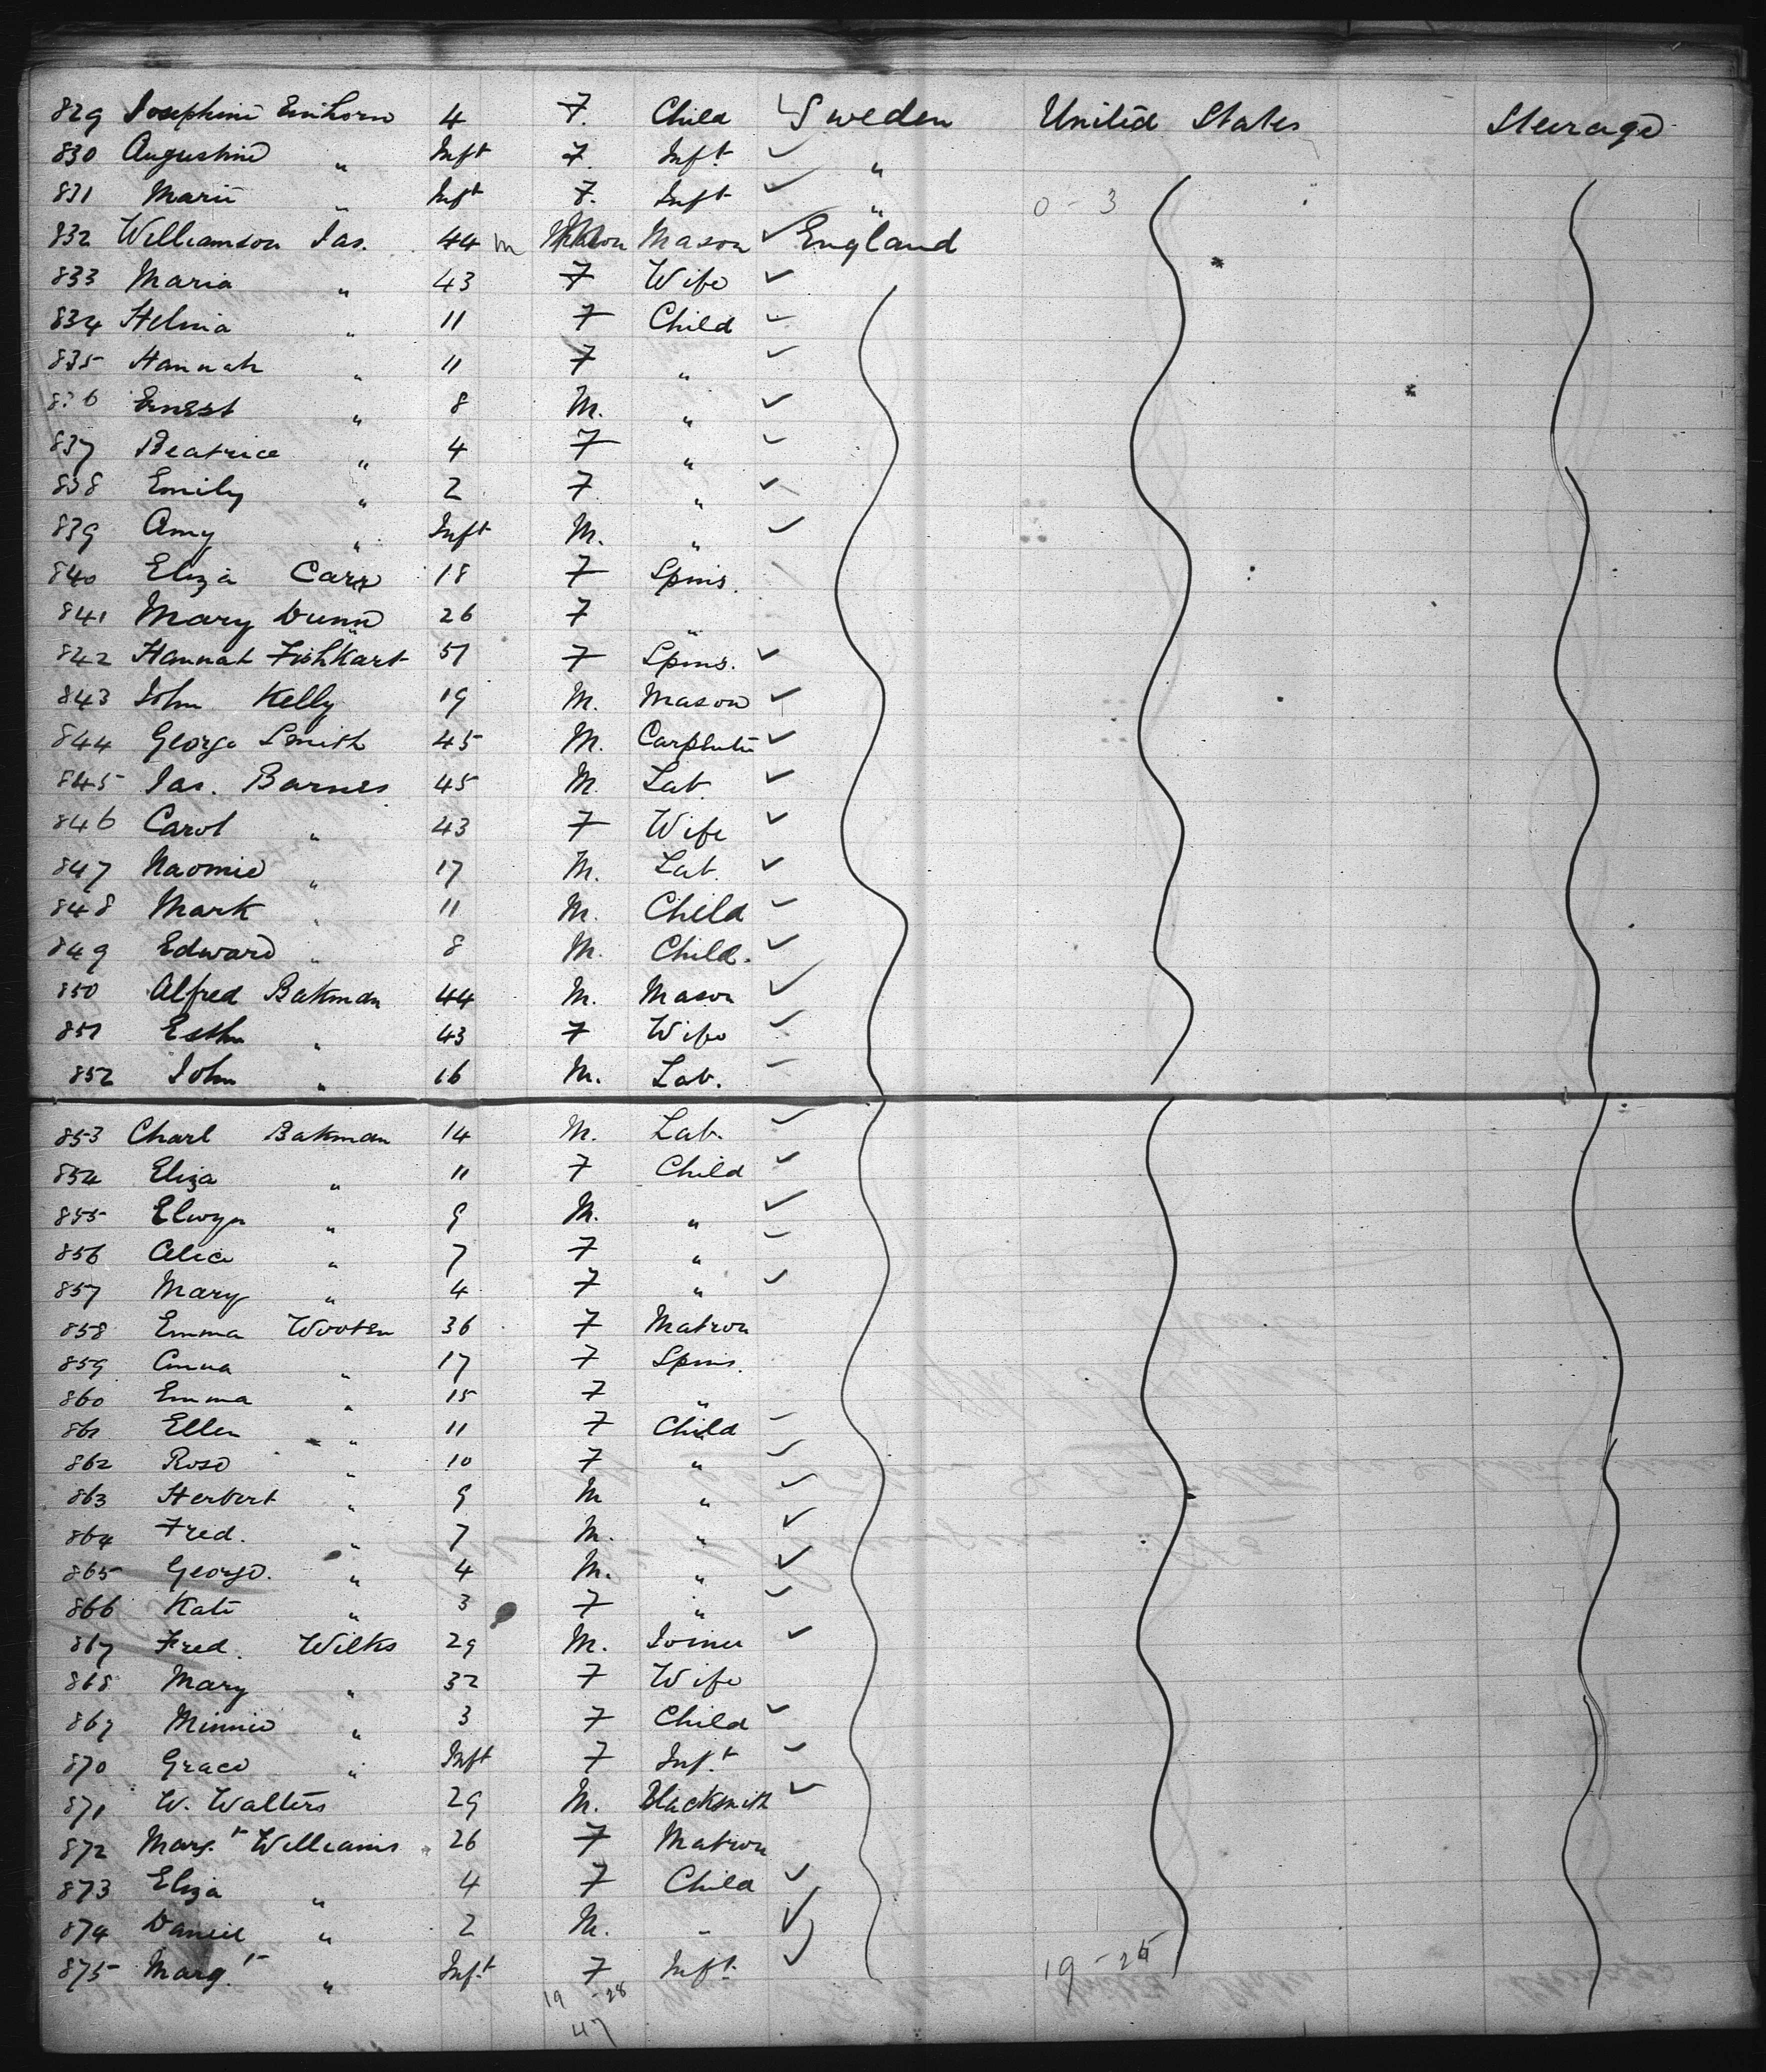 829 Josephine Einhorn 4 F. Child ✓ Sweden United States Steerage
830 Augustine " Inft F. Inft. ✓ "
831 Marie " Inft F. Inft ✓ " 0 - 3
832 Williamson Jas. 44 m Mason ✓ England
833 Maria " 43 F Wife ✓
834 " 11 F Child ✓
835 Hannah " 11 F " ✓
836 Ernest " 8 M. " ✓
837 Beatrice " 4 F " ✓
838 Emily " 2 F " ✓
839 Amy " Inft M. " ✓
840 Eliza Carr 18 F Spins.
841 Mary Dunn 26 F "
842 Hannah Fishkart 51 F Spins. ✓
843 John Kelly 19 M. Mason ✓
844 George Smith 45 M. Carpenter ✓
845 Jas. Barnes 45 M. Lab. ✓
846 Carol " 43 F Wife ✓
847 Naomie " 17 M. Lab. ✓
848 Mark " 11 M. Child ✓
849 Edward " 8 M. Child. ✓
850 Alfred Bakman 44 M. Mason ✓
851 Esthr " 43 F Wife ✓
852 John " 16 M. Lab. ✓
853 Charl Bakman 14 M. Lab. ✓
854 Eliza " 11 F Child ✓
855 Elwyn " 9 M. " ✓
856 Alice " 7 F " ✓
857 Mary " 4 F " ✓
858 Emma Wooten 36 F Matron
859 Anna " 17 F Spins.
860 Emma " 15 F "
861 Ellen " 11 F Child ✓
862 Rose " 10 F " ✓
863 Herbert " 9 M " ✓
864 Fred. " 7 M. " ✓
865 George. " 4 M. " ✓
866 Kate " 3 F " ✓
867 Fred. Wilks 29 M. Joiner ✓
868 Mary " 32 F Wife
869 Minnie " 3 F Child ✓
870 Grace " Inft F Inft. ✓
871 W. Walters 29 M. Blacksmith ✓
872 Marg.t Williams 26 F Matron
873 Eliza " 4 F Child ✓
874 Daniel " 2 M. " ✓
875 Marg.t " Inft. F Inft. ✓ 19 - 25
19 - 28
47